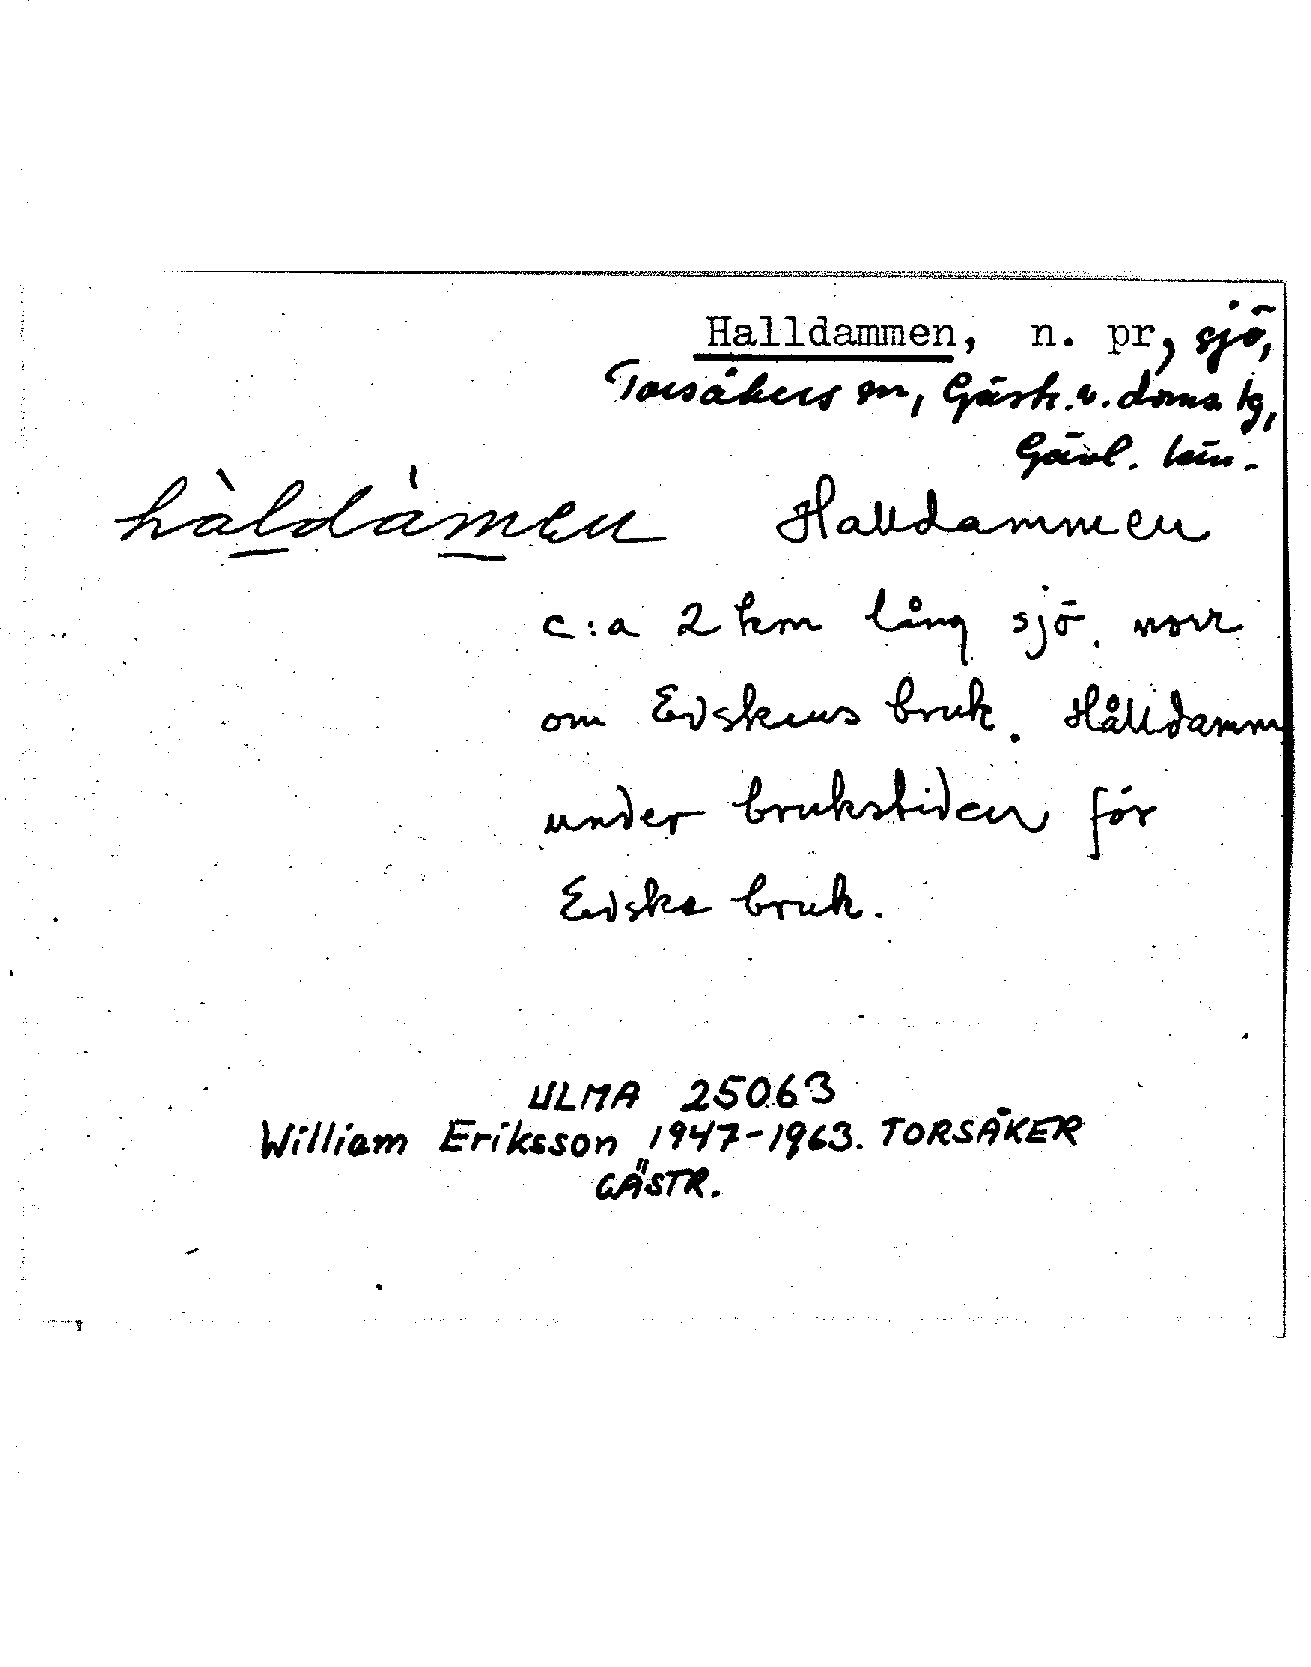 Halldammen, n. pr, sjö,
Torsåkers sn, Gästr. v. doms lg,
Gävl. län.
hàldàmen Halldammen
c:a 2 km lång sjö. norr
om Edskens bruk. Hålldamm
under brukstiden för
Edske bruk.
ULMA 25063
William Eriksson 1947-1963. TORSÅKER
GÄSTR.